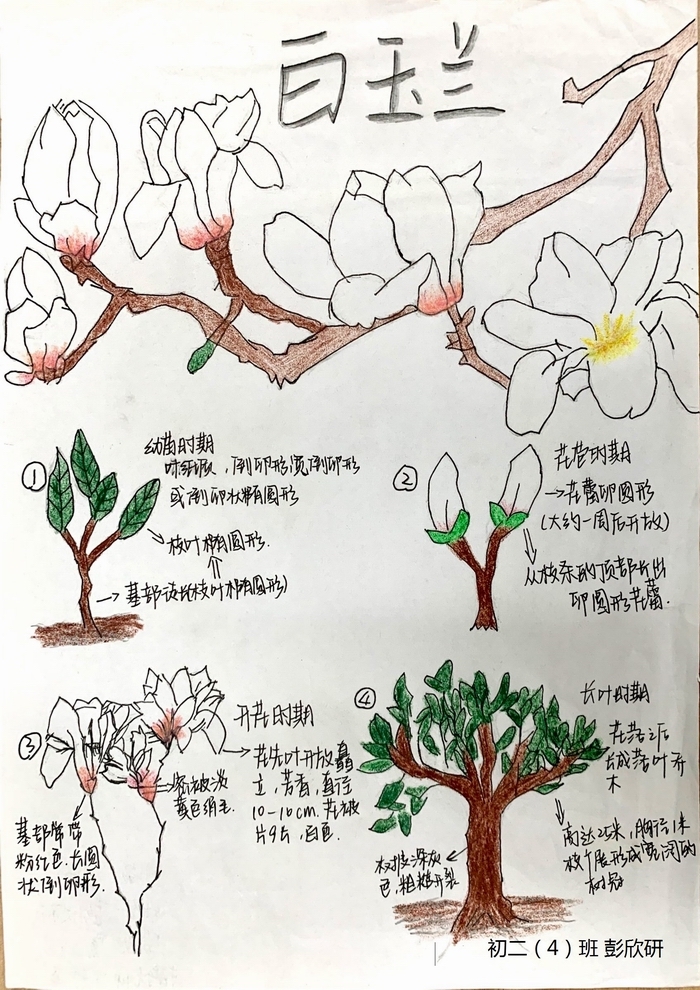 白玉兰
① 幼苗时期
，倒卵形宽倒卵形
或倒卵状椭圆形
枝叶椭圆形.
基部 枝叶椭圆形)
② 花苞时期
花蕾卵圆形
(大约一周后开放)
从枝条的顶部长出
卵圆形花蕾.
③ 开花时期
花先叶开放直
立，芳香，直径
10-16cm.花被
片9片，白色.
密被淡
黄色绢毛.
基部常带
粉红色.长圆
状倒卵形.
④ 长叶时期
花落之后
长成落叶乔
木
高达25米，胸径1米
枝 展形成宽阔的
树冠
树皮深灰
色,粗糙开裂
初二（4）班 彭欣研